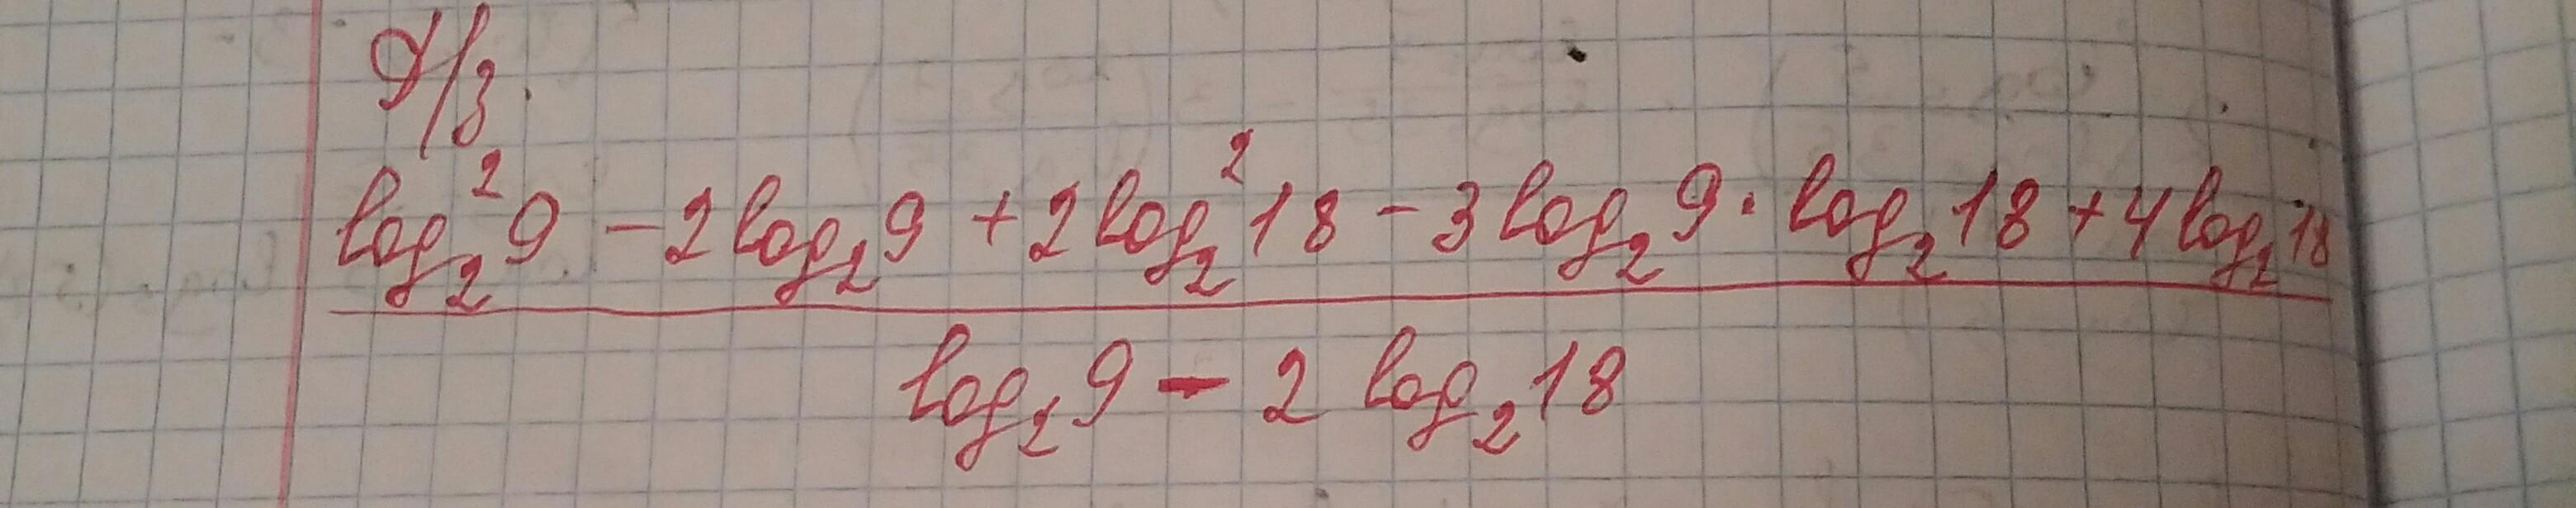 Д/з.
log₂²9 - 2log₂9 + 2log₂²18 - 3log₂9 · log₂18 + 4log₂18
log₂9 - 2log₂18